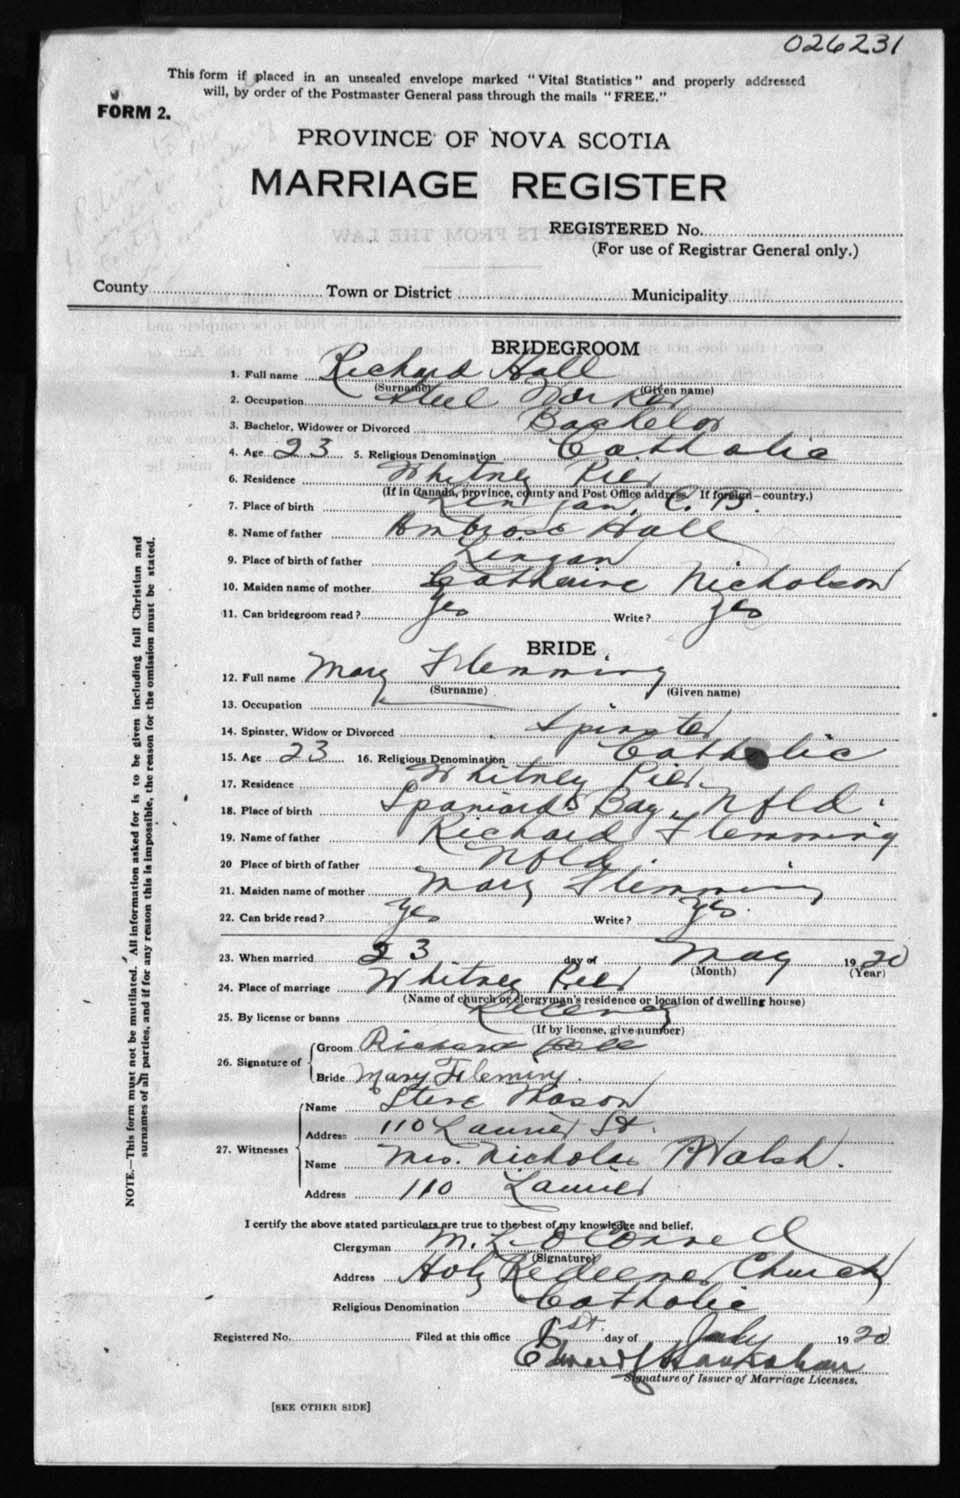 026231
This form if placed in an unsealed envelope marked "Vital Statistics" and properly addressed
will, by order of the Postmaster General pass through the mails "FREE."
FORM 2.
PROVINCE OF NOVA SCOTIA
MARRIAGE REGISTER
REGISTERED No.
(For use of Registrar General only.)
County Town or District Municipality
BRIDEGROOM
1. Full name Richard Hall
(Surname) (Given name)
2. Occupation Steel Worker
3. Bachelor, Widower or Divorced Bachelor
4. Age 23 5. Religious Denomination Catholic
6. Residence Whitney Pier
(If in Canada, province, county and Post Office address. If foreign—country.)
7. Place of birth Lingan, C. B.
8. Name of father Ambrose Hall
9. Place of birth of father Lingan
10. Maiden name of mother Catherine Nicholson
11. Can bridegroom read? Yes Write? Yes
BRIDE
12. Full name Mary Flemming
(Surname) (Given name)
13. Occupation
14. Spinster, Widow or Divorced Spinster
15. Age 23 16. Religious Denomination Catholic
17. Residence Whitney Pier
18. Place of birth Spaniards Bay, Nfld.
19. Name of father Richard Flemming
20 Place of birth of father Nfld.
21. Maiden name of mother Mary Flemming
22. Can bride read? Yes Write? Yes.
23. When married 23 day of May 1920
(Month) (Year)
24. Place of marriage Whitney Pier
(Name of church or clergyman's residence or location of dwelling house)
25. By license or banns
(If by license, give number)
26. Signature of Groom Richard Hall
Bride Mary Fleming.
27. Witnesses Name Steve Mason
Address 110 Laurier St.
Name Mrs. Nicholas Walsh.
Address 110 Laurier
I certify the above stated particulars are true to the best of my knowledge and belief.
Clergyman M. L. O'Connell
(Signature)
Address Holy Redeemer Church
Religious Denomination Catholic
Registered No. Filed at this office 1st. day of July 1920
Signature of Issuer of Marriage Licenses.
[SEE OTHER SIDE]
NOTE.—This form must not be mutilated. All information asked for is to be given including full Christian and
surnames of all parties, and if for any reason this is impossible, the reason for the omission must be stated.